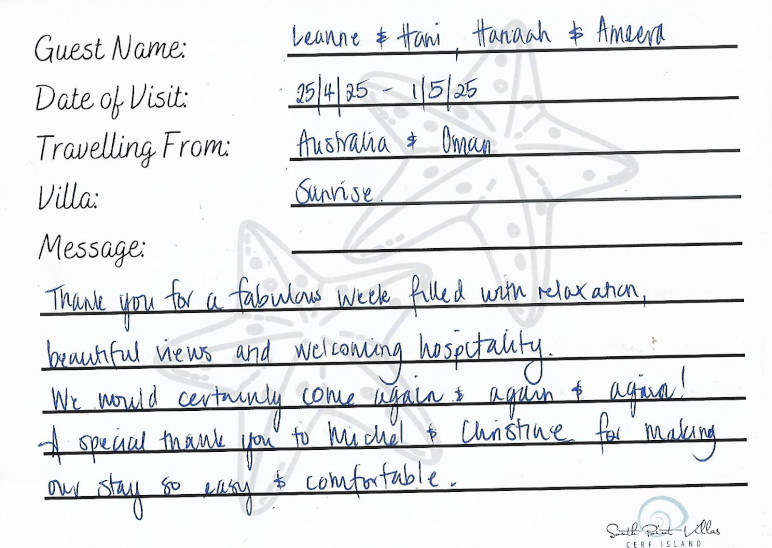 Guest Name: Leanne & Hani, Hanaah & Ameera
Date of Visit: 25/4/25 - 1/5/25
Travelling From: Australia & Oman
Villa: Sunrise.
Message:
Thank you for a fabulous week filled with relaxation,
beautiful views and welcoming hospitality.
We would certainly come again & again & again!
A special thank you to Michel & Christine for making
our stay so easy & comfortable.
South Point Villas
CERF ISLAND